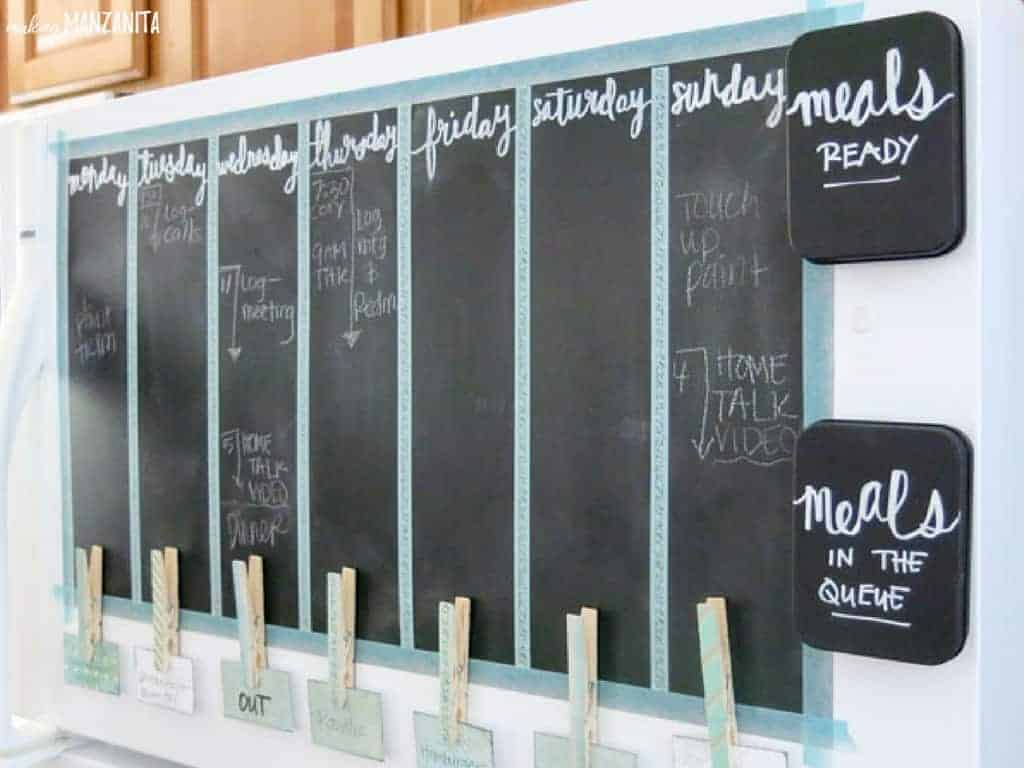 making MANZANITA
monday
tuesday
wednesday
thursday
friday
saturday
sunday
meals
READY
paint
Log-
calls
17 Log-
meeting
5 HOME
TALK
VIDEO
Dinner
7:30
Log
mtg
&
9AM
TALK
Touch
up
paint
4 HOME
TALK
VIDEO
meals
IN THE
QUEUE
OUT
Hamburgers